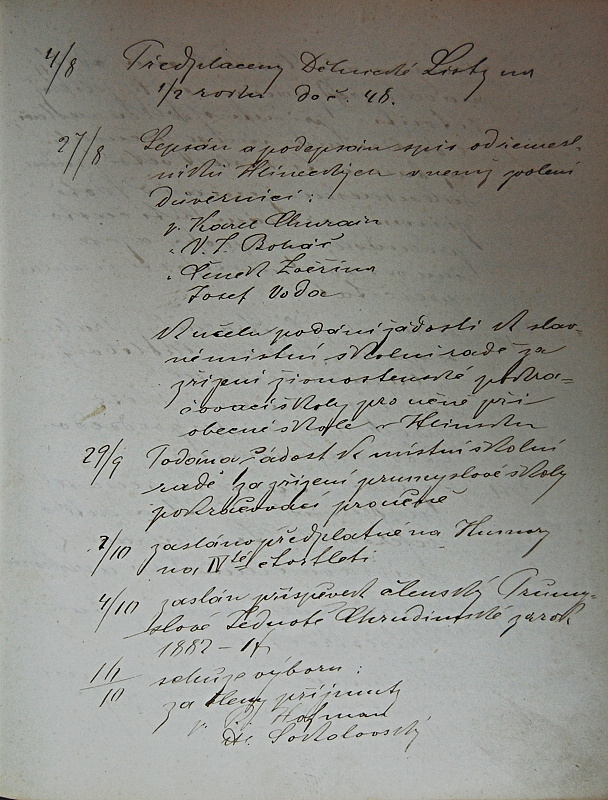 4/8 Předplaceny Dělnické Listy na
1/2 roku do č. 48.
27/8 Sepsán a podepsán spis od řemesl-
níků Hlineckých v nemž voleni
důvěrníci:
p. Karel Churain
" V. J. Boháč
" Čeněk Zvěřina
Josef Voda
K účelu podání žádosti k slav-
né místní školní radě za
zřízení živnostenské pokra-
čovací školy pro učně při
obecné škole v Hlinsku
29/9 Podána žádost k místní školní
radě za zřízení průmyslové školy
pokračovací pro učně
2/10 zasláno předplatné na Humory
na IVté čtvrtletí
4/10 zaslán příspěvek členský Průmy-
slové Jednotě Chrudimské za rok
1882 –
16/10 schůze výboru:
za členy přijmuty
p. Hofman
Sokolovský